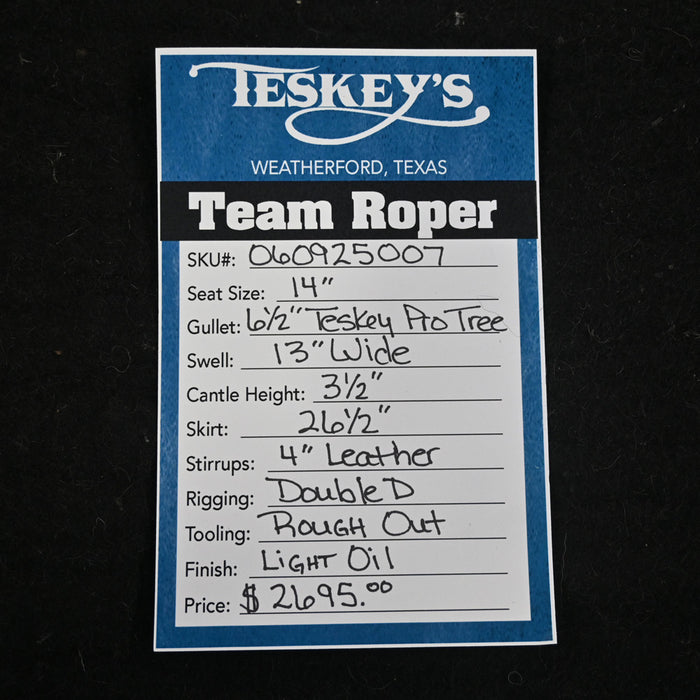 TESKEY'S
WEATHERFORD, TEXAS
Team Roper
SKU#: 060925007
Seat Size: 14"
Gullet: 6½" Teskey Pro Tree
Swell: 13" Wide
Cantle Height: 3½"
Skirt: 26½"
Stirrups: 4" Leather
Rigging: Double D
Tooling: Rough Out
Finish: Light Oil
Price: $2695.00